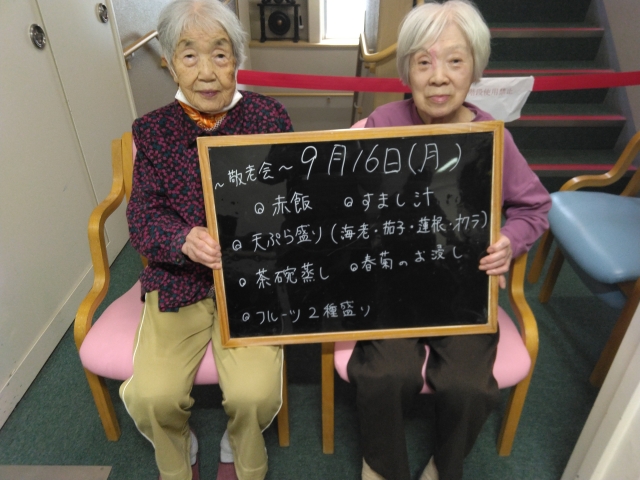 ～敬老会～ 9月16日(月)
◎赤飯 ◎すまし汁
◎天ぷら盛り(海老・茄子・蓮根・オクラ)
◎茶碗蒸し ◎春菊のお浸し
◎フルーツ2種盛り